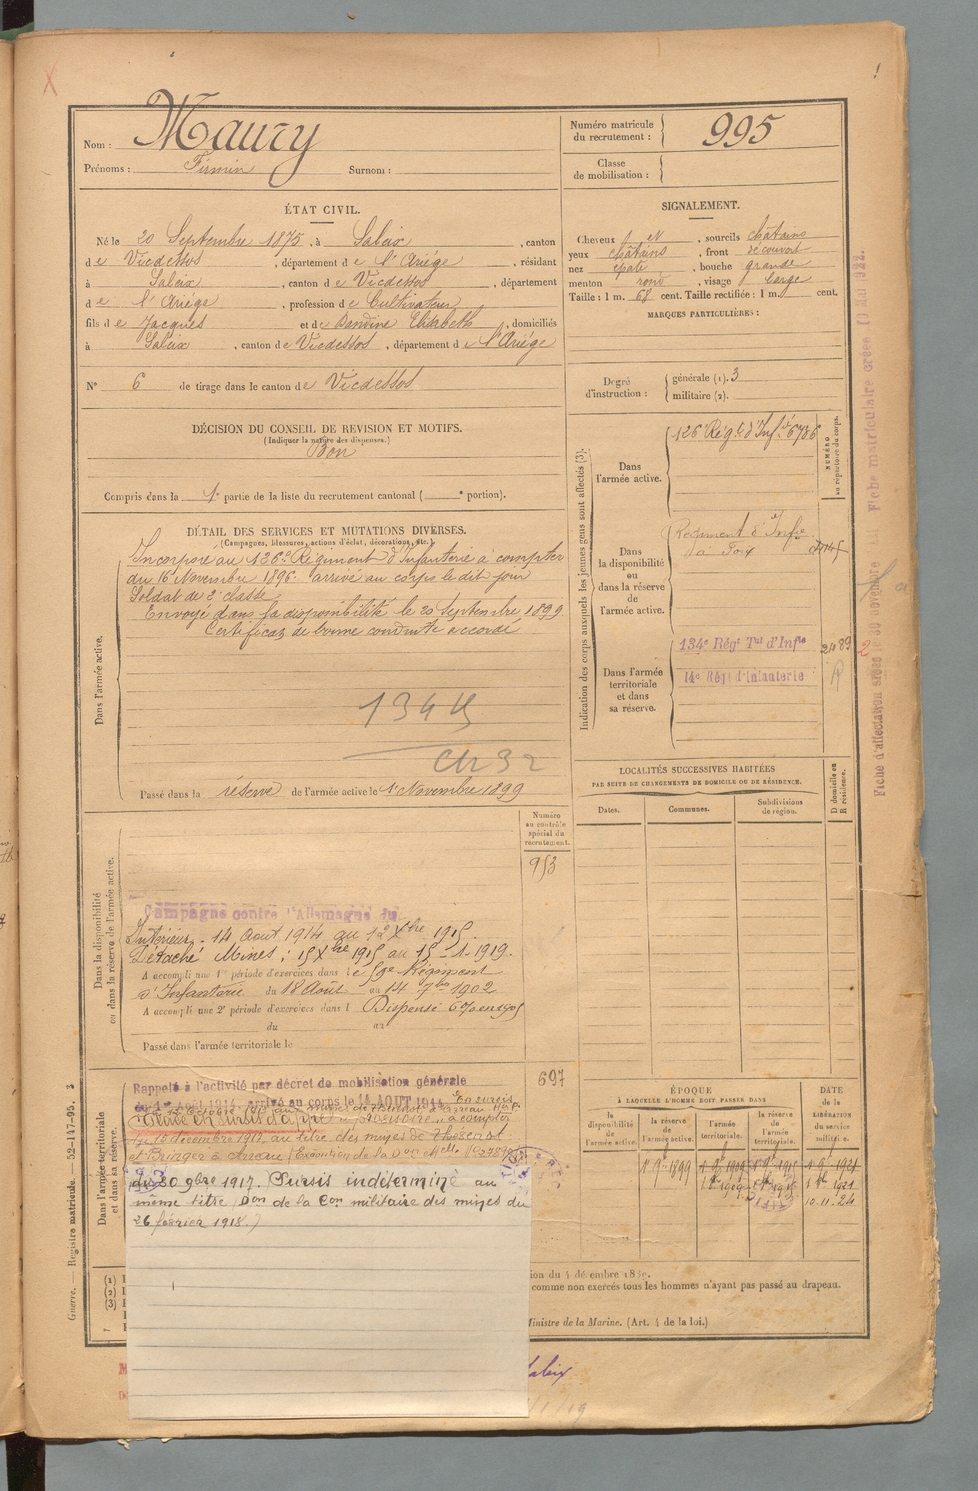 Nom : Maury
Prénoms : Firmin Surnom :
Numéro matricule
du recrutement : 995
Classe
de mobilisation :
ÉTAT CIVIL.
Né le 20 Septembre 1875, à Saleix, canton
de Vicdessos, département de l'Ariège, résidant
à Saleix, canton de Vicdessos, département
de l'Ariège, profession de Cultivateur
fils de Jacques et de Dandine Elisabeth, domiciliés
à Saleix, canton de Vicdessos, département de l'Ariège
N° 6 de tirage dans le canton de Vicdessos
SIGNALEMENT.
Cheveux et, sourcils châtains
yeux châtains, front découvert
nez épaté, bouche grande
menton rond, visage large
Taille : 1 m. 68 cent. Taille rectifiée : 1 m. cent.
MARQUES PARTICULIÈRES :
Degré
d'instruction :
générale (1). 3
militaire (2).
DÉCISION DU CONSEIL DE REVISION ET MOTIFS.
(Indiquer la nature des dispenses.)
Bon
Compris dans la 1e partie de la liste du recrutement cantonal ( e portion).
DÉTAIL DES SERVICES ET MUTATIONS DIVERSES.
(Campagnes, blessures, actions d'éclat, décorations, etc.)
Dans l'armée active.
Incorporé au 126e Régiment d'Infanterie à compter
du 16 Novembre 1896. arrivé au corps le dit jour
Soldat de 2e classe
Envoyé dans la disponibilité le 20 Septembre 1899
Certificat de bonne conduite accordé
Passé dans la réserve de l'armée active le 1er Novembre 1899
Indication des corps auxquels les jeunes gens sont affectés (3).
NUMÉRO
au répertoire du corps.
Dans
l'armée active.
126e Régt d'Infie 6786
Dans
la disponibilité
ou
dans la réserve
de
l'armée active.
Régiment d'Infie
de Foix
Dans l'armée
territoriale
et dans
sa réserve.
134e Régt Tal d'Infie 2489
14e Régt d'Infanterie
2
LOCALITÉS SUCCESSIVES HABITÉES
PAR SUITE DE CHANGEMENTS DE DOMICILE OU DE RÉSIDENCE.
Dates.
Communes.
Subdivisions
de région.
D domicile ou
R résidence.
Numéro
au contrôle
spécial du
recrutement.
953
Dans la disponibilité
ou dans la réserve de l'armée active.
Campagne contre l'Allemagne du
Intérieur. 14 Août 1914 au
Détaché Mines : 15 Xbre 1915 au 15-1-1919.
A accompli une 1re période d'exercices dans le 59e Régiment
d'Infanterie du 18 Août au 14 7bre 1902
A accompli une 2e période d'exercices dans l Dispensé en 1905
du au
Passé dans l'armée territoriale le
697
Dans l'armée territoriale
et dans sa réserve.
Rappelé à l'activité par décret de mobilisation générale
du 1er Août 1914, arrivé au corps le 14 AOUT 1914
du 15 décembre 1917, au titre des mines de
du 30 9bre 1917. Sursis indéterminé au
même titre (Don de la Con militaire des mines du
26 février 1918.)
ÉPOQUE
À LAQUELLE L'HOMME DOIT PASSER DANS
la
disponibilité
de
l'armée active.
la réserve
de
l'armée active.
l'armée
territoriale.
la réserve
de
l'armée
territoriale.
DATE
de la
LIBÉRATION
du service
militaire.
1er 9bre 1899
10.11.24
ion du 4 décembre 1889.
comme non exercés tous les hommes n'ayant pas passé au drapeau.
Ministre de la Marine. (Art. 4 de la loi.)
Guerre. — Registre matricule. — 52-147-95.
Saleix